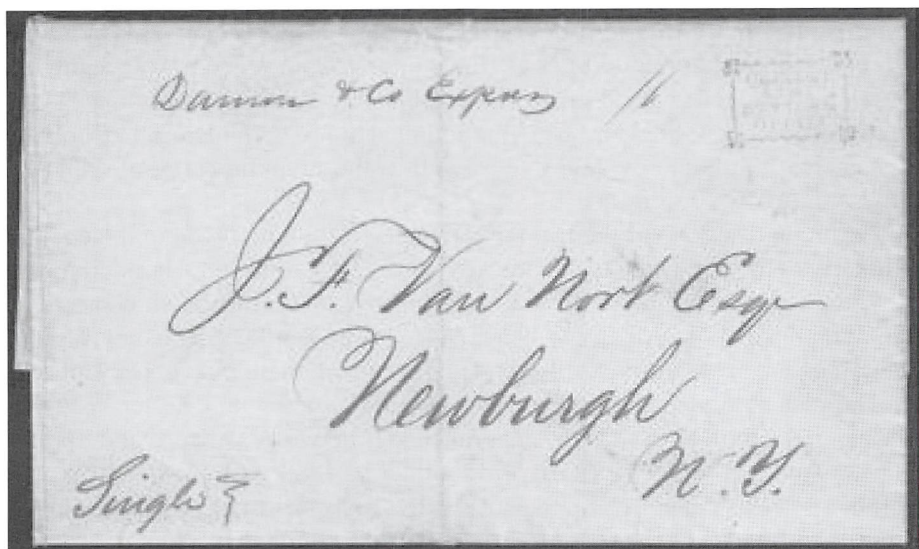 & Co Express 11
J. F. Van Nort Esqr
Newburgh
N.Y.
Single